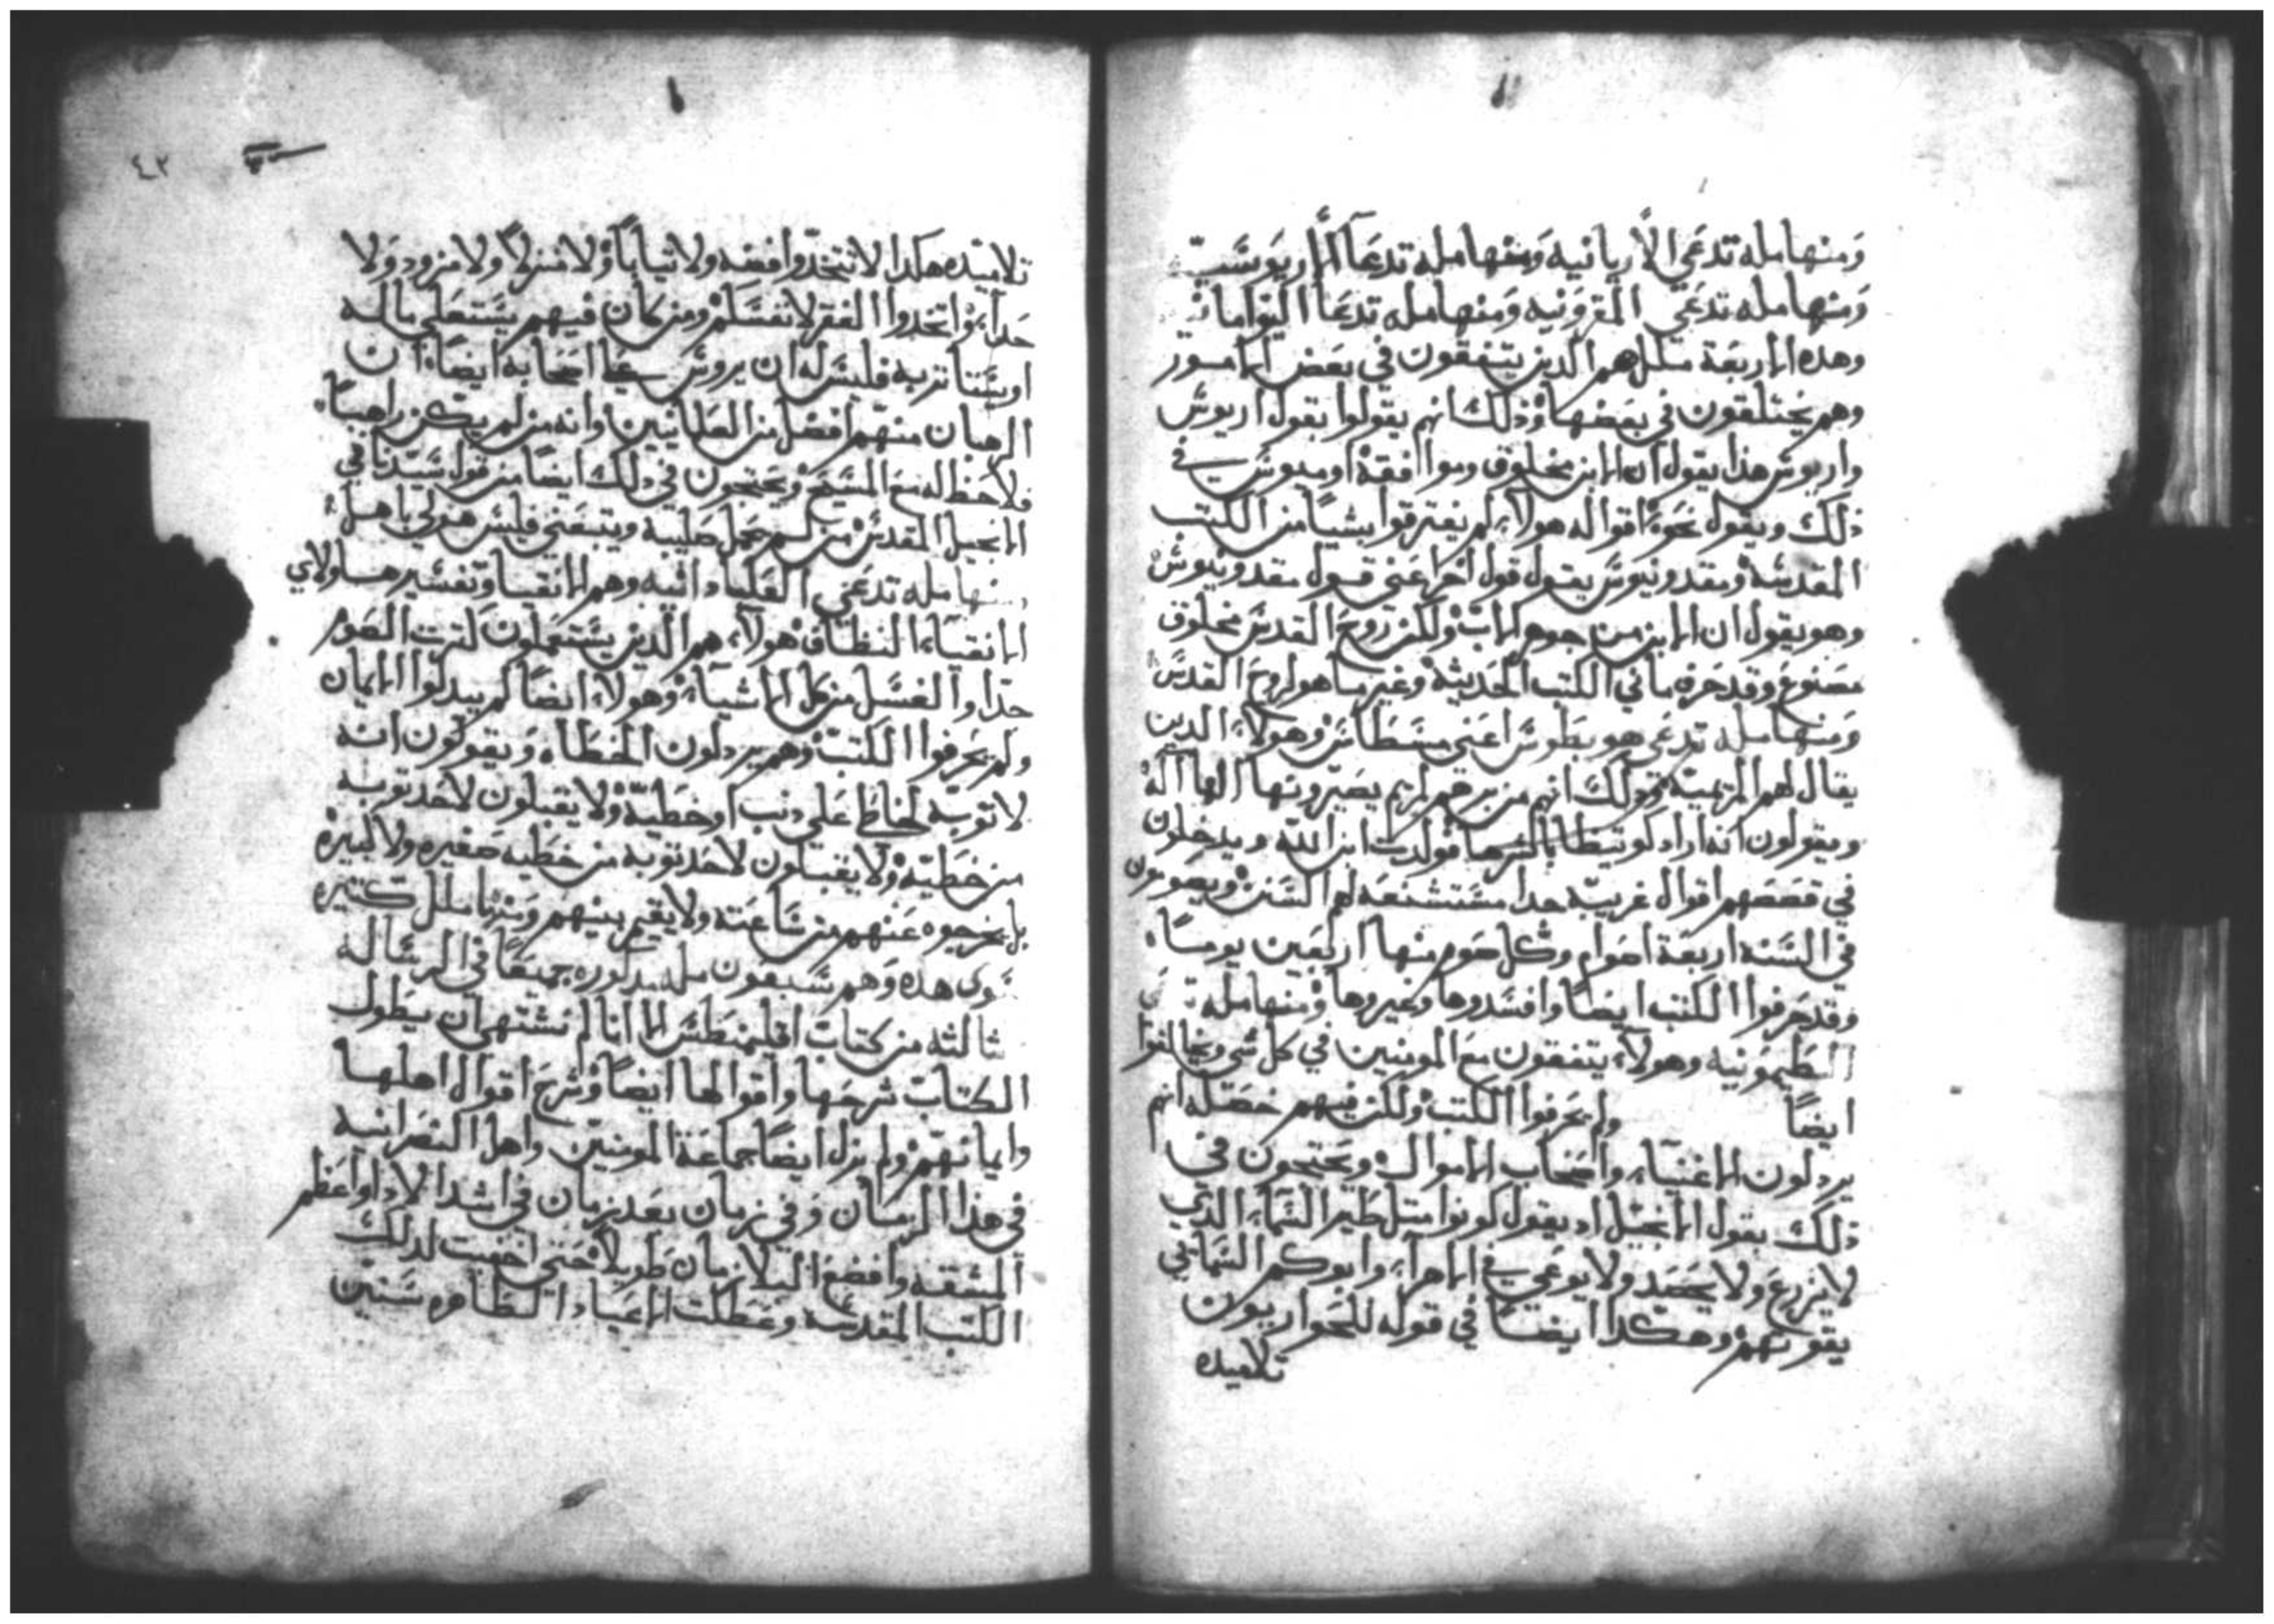 ومنها مله تدعي الاريانيه ومنها مله تدعا الاريوسيه
ومنها مله تدعي المقرونيه ومنها مله تدعا
وهده الاربعة ملل هم الدين يتفقون في بعض الامور
وهم يختلفون في بعضها وذلك انهم يقولوا بقول اريوس
واريوس هذا يقول ان الابن مخلوق وموافقة اوميوس في
ذلك ويقول نحو اقواله هولاء لم يفترقوا بشيا من الكتب
المقدسه ومقدونيوس يقول قول اخر اعني قول مقدونيوس
وهو يقول ان الابن من جوهر الاب ولكن روح القدس مخلوق
مصنوع وقد حرف ما في الكتب الحديثه وغير ما هو لروح القدس
ومنها مله تدعي هو بطوس اعني وهولاء الدين
يقال لهم المريمية وذلك انهم من لمريم يصيرونها الها
ويقولون انه اراد فولدت ابن الله ويدخلون
في قصصهم اقوال غريبه جدا مستشنعه لهم السنن ويصومون
في السنه اربعة اصوام وكل صوم منها اربعين يوما
وقد حرفوا الكتب ايضا وافسدوها وغيروها ومنها مله
وهولاء يتفقون مع المومنين في كل شي ويخالفوا
ايضا ولم يحرفوا الكتب ولكن فيهم خصله انهم
يردلون الاغنياء واصحاب الاموال ويحتجون في
ذلك بقول الانجيل اد يقول كونوا متل طير السماء الذي
لا يزرع ولا يحصد ولا يوعي في الاهراء وابوكم السمايي
يقوتهم وهكدا ايضا في قوله للحواريون
تلاميده
٤٢
تلاميده هكدا لا تتخدوا فضه ولا ثيابا ولا منزلا ولا مزود ولا
حداء واتخدوا الفقر لانفسكم ومن كان فيهم يستعلي ماله
او يستاتر به فليس له ان يروس علي اصحابه ايضا ان
الرهبان منهم افضل من العلمانيين وانه من لم يكن راهبا
فلا حظ له مع المسيح ويحتجون في دلك ايضا من قول سيدنا في
الانجيل المقدس من لم يحمل صليبه ويتبعني فليس هو لي باهل
ومنها مله تدعي وهم الانقيا وتفسير هاولاي
الانقياء النظاف هولاء هم الدين يستعملون كترت الصوم
جدا والغسل من كل الاشياء وهولاء ايضا لم يبدلوا الايمان
ولم يحرفوا الكتب وهم يردلون الخطاه ويقولون انه
لا توبه لخاطي علي دنب او خطيه ولا يقبلون لاحد توبه
من خطيه ولا يقبلون لاحد توبه من خطيه صغيره ولا كبيره
بل يخرجوه عنهم من ساعته ولا يقيم بينهم ومنها ملل كتيره
سوى هده وهم سبعون مله مدكوره جميعا في الرساله
ثالثه من كتاب اقليمنطس الا انا لم نشتهي ان يطول
الكتاب شرحها واقوالها ايضا وشرح اقوال اهلها
وايمانهم ولم نزل ايضا جماعة المومنين واهل النصرانيه
في هذا الزمان وفي زمان بعد زمان في اشد الاداواعظم
المشقه وافضع البلا زمان طويلا حتي اخفيت لدلك
الكتب المقدسه وعطلت الاعياد الظاهره سنين